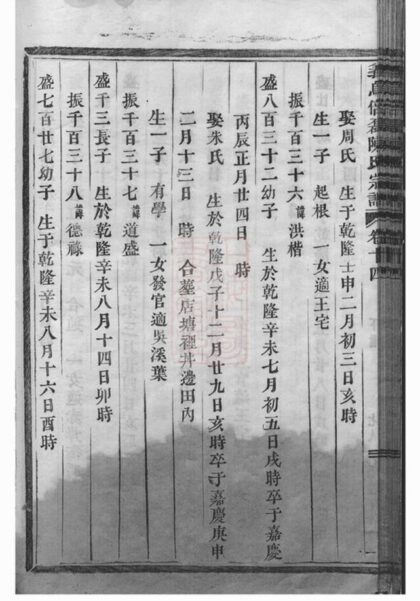 陳氏宗譜 卷十四
娶周氏 生于乾隆壬申二月初三日亥時
生一子 起根 一女適王宅
振千百三十六諱洪楷
盛八百三十二幼子 生於乾隆辛未七月初五日戌時卒于嘉慶
丙辰正月廿四日 時
娶朱氏 生於乾隆戊子十二月廿九日亥時卒于嘉慶庚申
二月十三日 時 合墓店塘裡井邊田內
生一子 有學 一女發官適吳溪葉
振千百三十七諱道盛
盛千三長子 生於乾隆辛未八月十四日卯時
振千百三十八諱德祿
盛七百廿七幼子 生于乾隆辛未八月十六日酉時